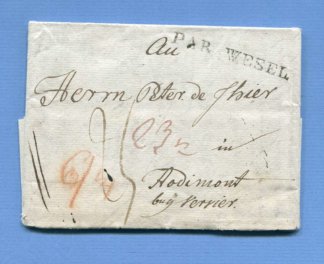 PAR WESEL
An
Herrn Peter de Thier
in
Hodimont
bey Vervier.